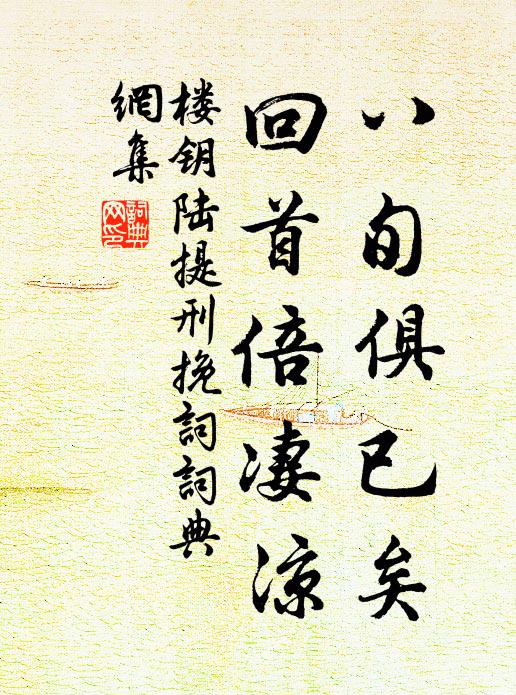 八旬俱已矣
回首倍凄凉
楼钥陆提刑挽詞詞典
網集
詞典
网印